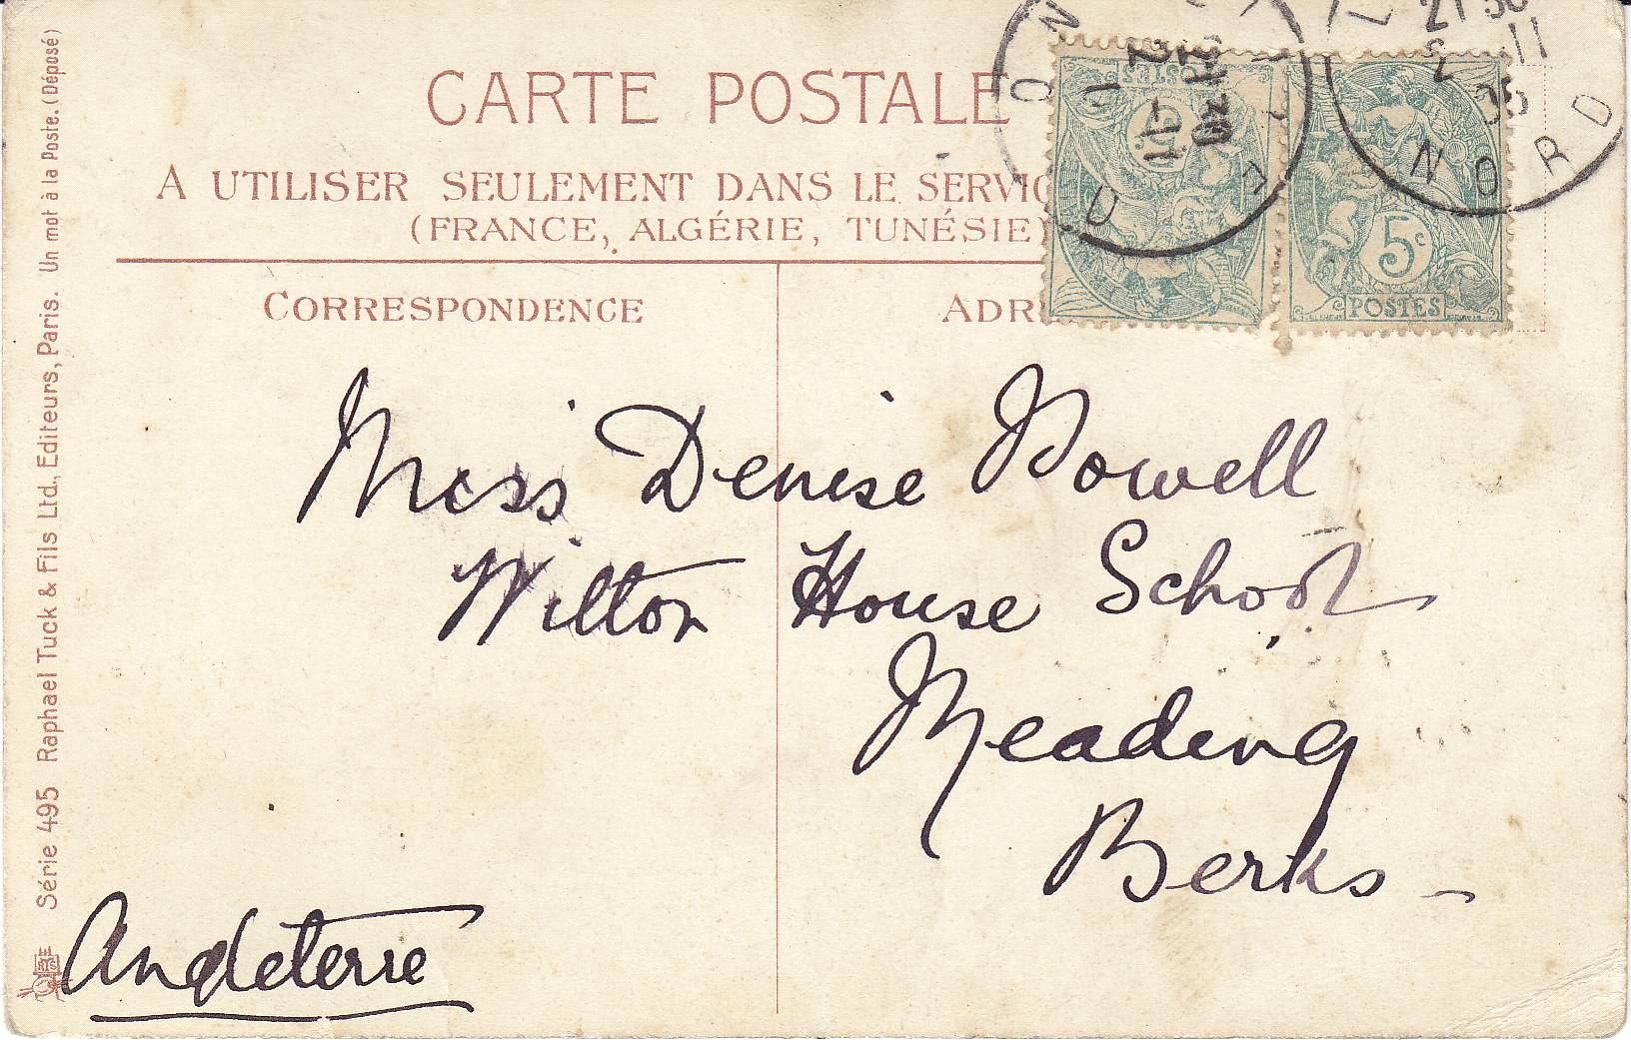 CARTE POSTALE
A UTILISER SEULEMENT DANS LE SERVIC
(FRANCE, ALGÉRIE, TUNÉSIE)
CORRESPONDENCE
ADR
Série 495 Raphael Tuck & Fils Ltd., Editeurs, Paris. Un mot à la Poste. (Déposé)
5c
POSTES
POSTES
21 30
2 -11
05
NORD
21 30
2 -11
NORD
Miss Denise Powell
Wilton House School
Reading
Berks -
Angleterre